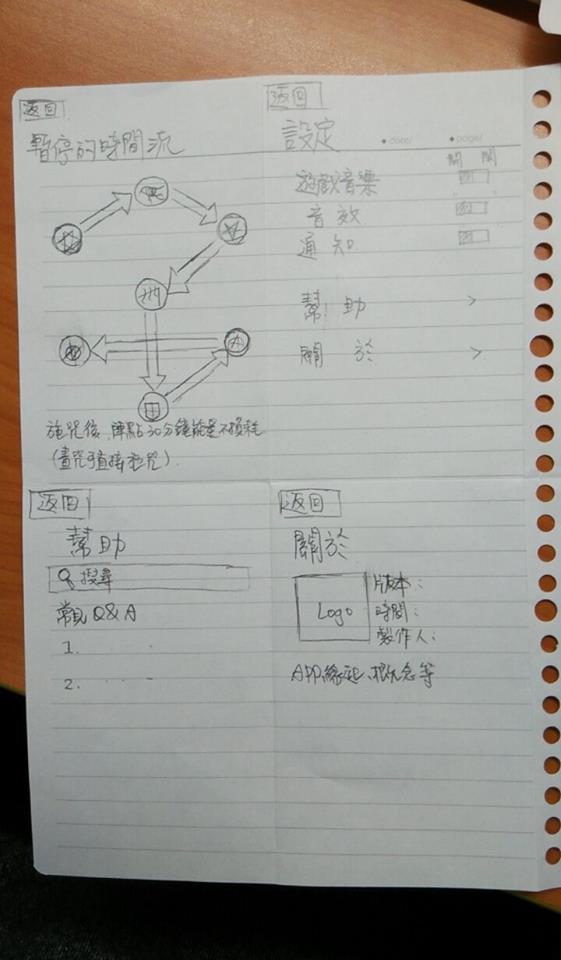 返回
暫停的時間流
施咒後, 陣點30分鐘能量不損耗
(畫完可直接施咒).
返回
設定
date/ page/
開 關
遊戲音樂
音效
通知
幫助 >
關於 >
返回
幫助
搜尋
常見Q&A
1.
2.
返回
關於
Logo
版本:
時間:
製作人:
APP緣起、概念等